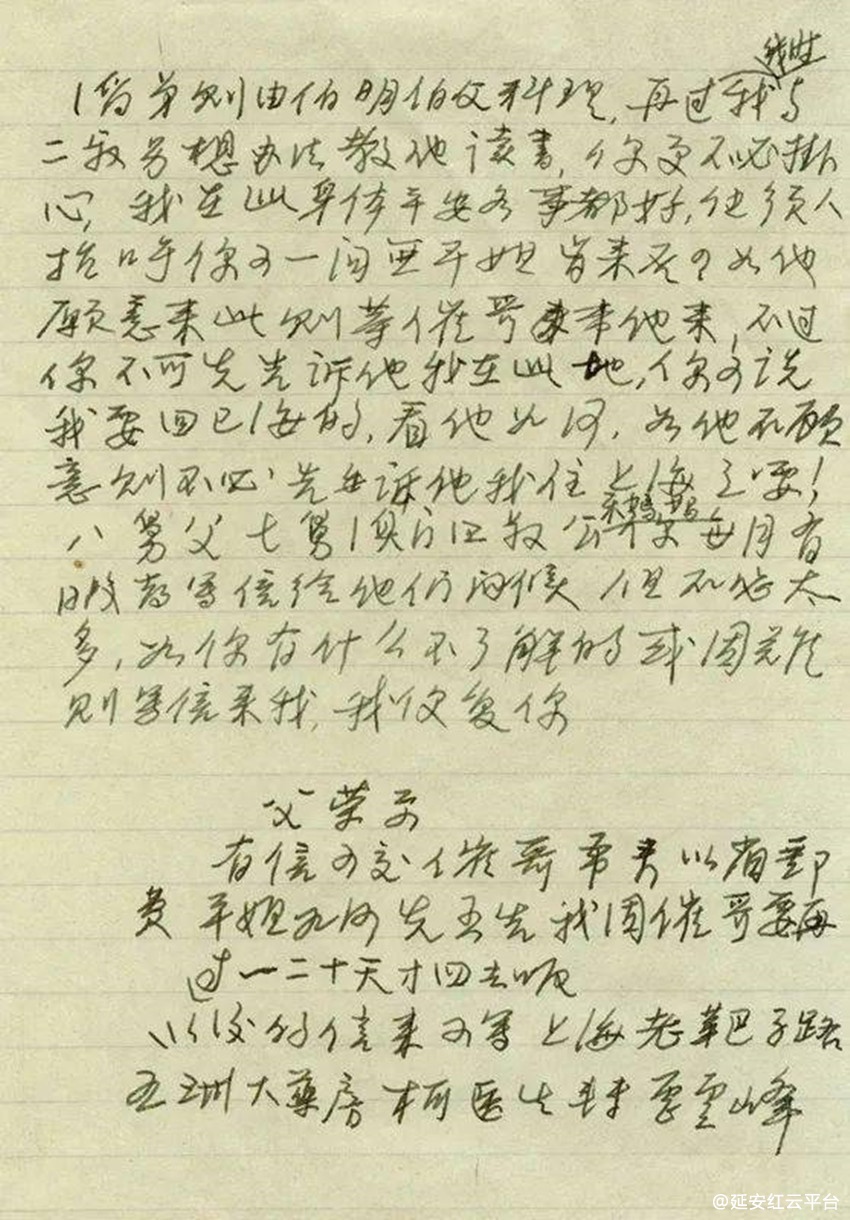 我时
佾弟则由伯明伯父料理,再过我与
二叔另想办法教他读书,你更不必掛
心,我在此身体平安各事都好,但须人
招呼你可一问平姐肯来否?如他
愿意来此则等催哥来带他来,不过
你不可先告诉他我在此地,你可说
我要回上海的,看他如何,如他不愿
意则不必告诉他我住上海之要!
八舅父七舅叔公每月有
暇都写信给他们问候但不必太
多,如你有什么不了解的或困难
则写信来我,我以便复你
父荣示
有信可交催哥带来以省郵
费平姐如何先函告我因催哥要再
过一二十天才回去呢
以後的信来可写上海老靶子路
五洲大藥房柯医生转李雲峰
@延安红云平台